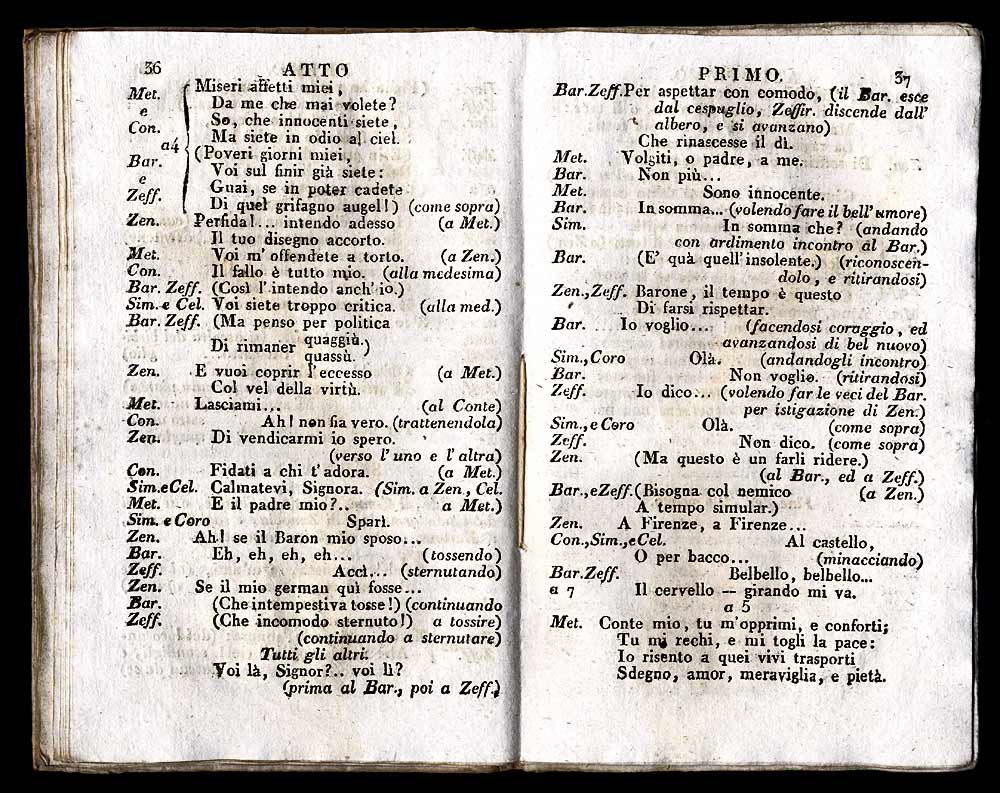 36 ATTO
Met. Miseri affetti miei,
e Da me che mai volete?
Con. So, che innocenti siete,
a4 Ma siete in odio al ciel.
Bar. (Poveri giorni miei,
e Voi sul finir già siete:
Zeff. Guai, se in poter cadete
Di quel grifagno augell) (come sopra)
Zen. Perfida!... intendo adesso (a Met.)
Il tuo disegno accorto.
Met. Voi m'offendete a torto. (a Zen.)
Con. Il fallo è tutto mio. (alla medesima)
Bar. Zeff. (Così l'intendo anch'io.)
Sim. e Cel. Voi siete troppo critica. (alla med.)
Bar. Zeff. (Ma penso per politica
Di rimaner quaggiù.
quassù.)
Zen. E vuoi coprir l'eccesso (a Met.)
Col vel della virtù.
Met. Lasciami... (al Conte)
Con. Ah! non fia vero. (trattenendola)
Zen. Di vendicarmi io spero.
(verso l'uno e l'altra)
Con. Fidati a chi t'adora. (a Met.)
Sim.eCel. Calmatevi, Signora. (Sim. a Zen., Cel.
Met. E il padre mio?.. a Met.)
Sim. e Coro Sparì.
Zen. Ah! se il Baron mio sposo...
Bar. Eh, eh, eh, eh... (tossendo)
Zeff. Accì... (sternutando)
Zen. Se il mio german quì fosse...
Bar. (Che intempestiva tosse!) (continuando
Zeff. (Che incomodo sternuto!) a tossire)
(continuando a sternutare)
Tutti gli altri.
Voi là, Signor?.. voi lì?
(prima al Bar., poi a Zeff.)
PRIMO. 37
Bar.Zeff.Per aspettar con comodo, (il Bar. esce
dal cespuglio, Zeffir. discende dall'
albero, e si avanzano)
Che rinascesse il dì.
Met. Volgiti, o padre, a me.
Bar. Non più...
Met. Sono innocente.
Bar. In somma... (volendo fare il bell'umore)
Sim. In somma che? (andando
con ardimento incontro al Bar.)
Bar. (E' quà quell'insolente.) (riconoscen-
dolo, e ritirandosi)
Zen.,Zeff. Barone, il tempo è questo
Di farsi rispettar.
Bar. Io voglio... (facendosi coraggio, ed
avanzandosi di bel nuovo)
Sim., Coro Olà. (andandogli incontro)
Bar. Non voglio. (ritirandosi)
Zeff. Io dico... (volendo far le veci del Bar.
per istigazione di Zen.)
Sim., e Coro Olà. (come sopra)
Zeff. Non dico. (come sopra)
Zen. (Ma questo è un farli ridere.)
(al Bar., ed a Zeff.)
Bar., eZeff. (Bisogna col nemico (a Zen.)
A tempo simular.)
Zen. A Firenze, a Firenze...
Con., Sim., e Cel. Al castello,
O per bacco... (minacciando)
Bar.Zeff. Belbello, belbello...
a 7 Il cervello — girando mi va.
a 5
Met. Conte mio, tu m'opprimi, e conforti;
Tu mi rechi, e mi togli la pace:
Io risento a quei vivi trasporti
Sdegno, amor, meraviglia, e pietà.